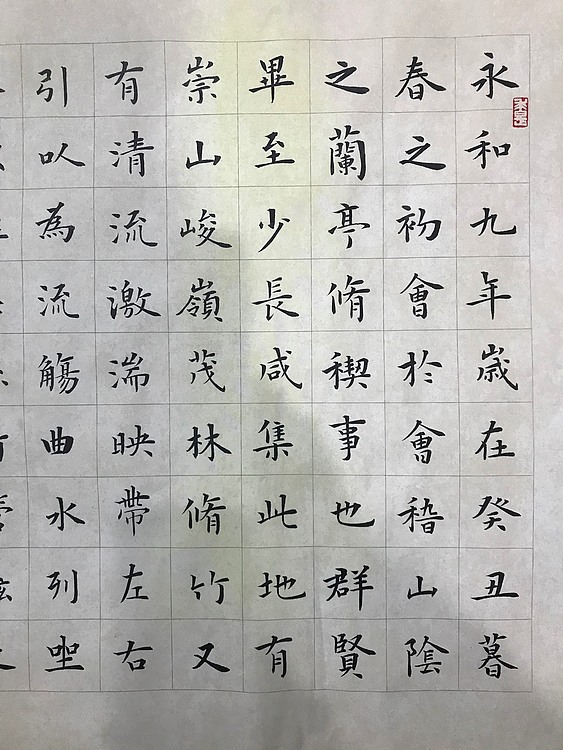 永和九年歲在癸丑暮
春之初會於會稽山陰
之蘭亭脩稧事也群賢
畢至少長咸集此地有
崇山峻嶺茂林脩竹又
有清流激湍映帶左右
引以為流觴曲水列坐